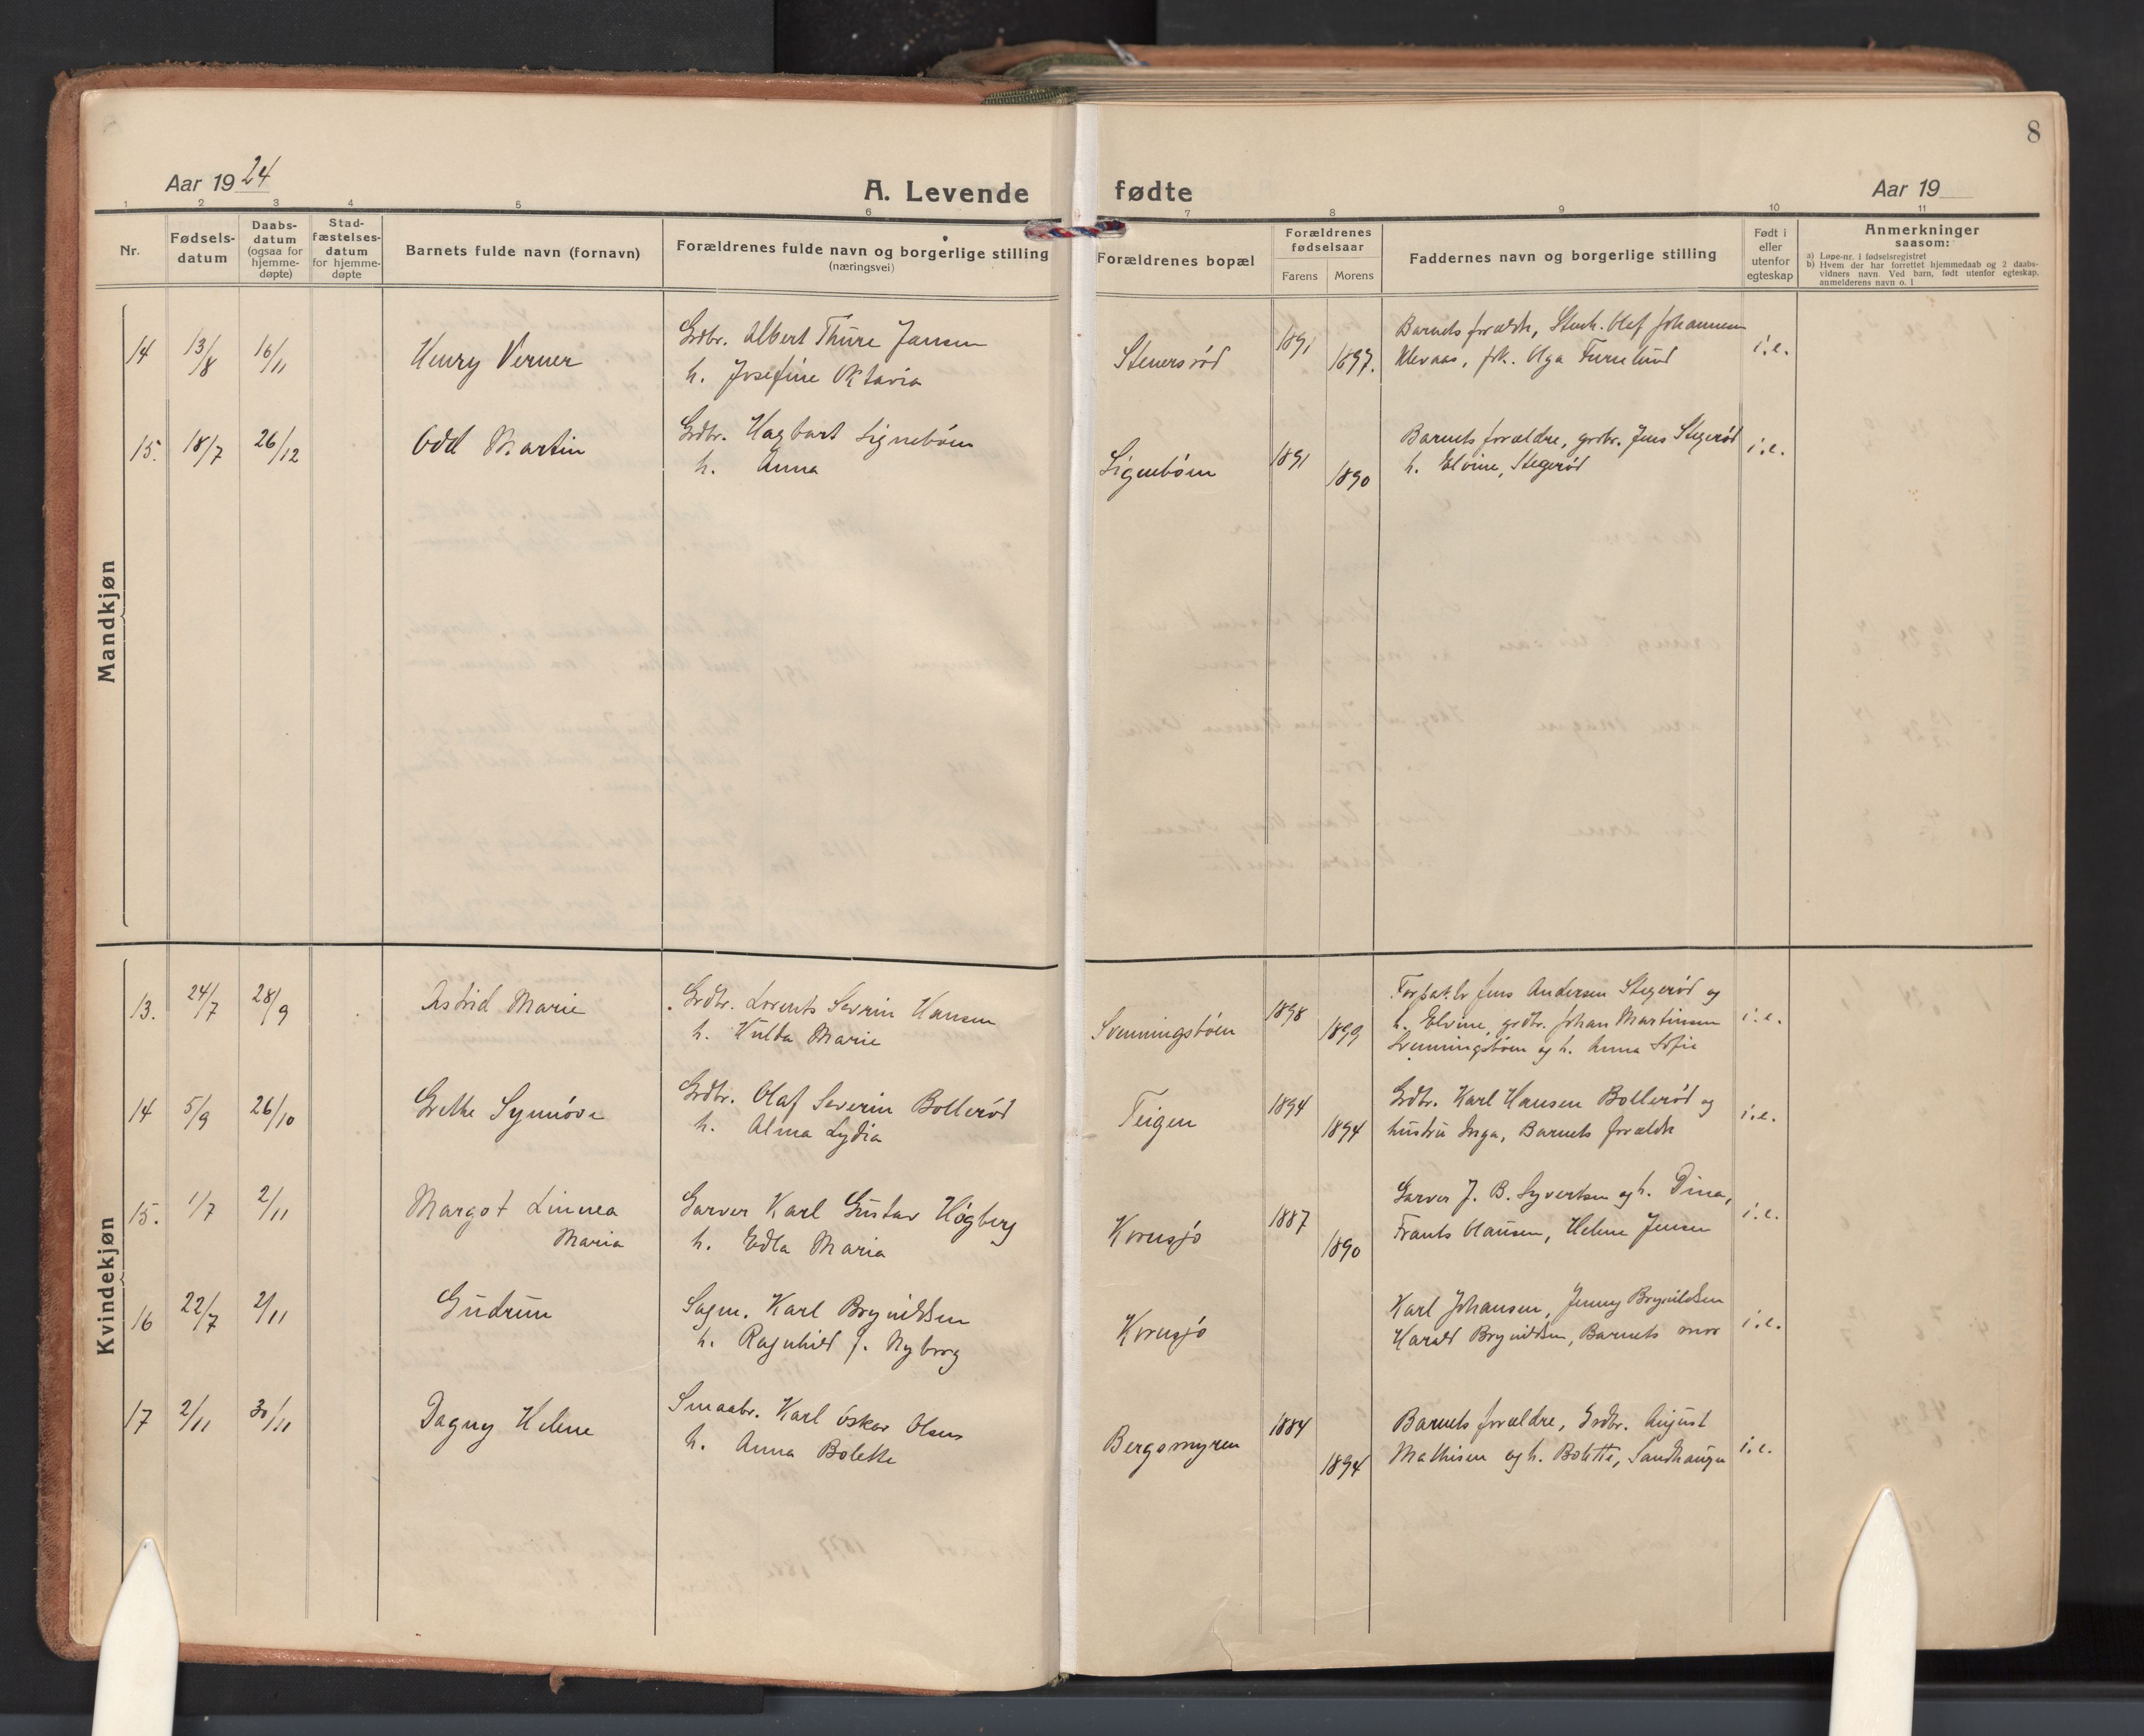 8
Aar 1924
A. Levende fødte
Aar 19
1 2 3 4 5 6 7 8 9 10 11
Nr.
Fødsels-
datum
Daabs-
datum
(ogsaa for
hjemme-
døpte)
Stad-
fæstelses-
datum
for hjemme-
døpte
Barnets fulde navn (fornavn)
Forældrenes fulde navn og borgerlige stilling
(næringsvei)
Forældrenes bopæl
Forældrenes
fødselsaar
Farens Morens
Faddernes navn og borgerlige stilling
Født i
eller
utenfor
egteskap
Anmerkninger
saasom:
a) Løpe-nr. i fødselsregistret
b) Hvem der har forrettet hjemmedaab og 2 daabs-
vidners navn. Ved barn, født utenfor egteskap,
anmelderens navn o. l
Mandkjøn
14 13/8 16/11 Henry Verner
Grdbr. Albert Thure Jansen
h. Josefine Oktavia
Stenersrød 1891 1897.
Barnets forældr, Stenh. Olef Johannesen
Klevaas, frk. Olga Furulund
i.e.
15. 18/7 26/12 Odd Martin
Grdbr. Hagbart Lignebøen
h. Anna
Lignebøen 1891 1890
Barnets forældre, grdbr. Jens Stegerød
h. Elvine, Stegerød
i.e.
Kvindekjøn
13. 24/7 28/9 Astrid Marie
Grdbr. Lorents Sevrin Hansen
h. Hulda Marie
Svenningsbøen 1898 1899
Forpakt.br Jens Andersen Stegerød og
h. Elvine, grdbr. Johan Martinsen
Svenningsbøen og h. Anna Sofie
i.e.
14 5/9 26/10 Grethe Synnøve
Grdbr. Olaf Severin Bollerød
h. Alma Lydia
Teigen 1894 1894
Grdbr. Karl Hansen Bollerød og
hustru Inga, Barnets forældr
i.e.
15. 1/7 2/11 Margot Linnea
Maria
Garver Karl Gustav Högberg
h. Edla Maria
Kornsjø 1887 1890
Garver J. B. Syvertsen og h. Dina,
Frants Clausen, Helene Jensen
i.e.
16 22/7 2/11 Gudrun
Sagm. Karl Brynildsen
h. Ragnhild f. Nyborg
Kornsjø
Karl Johansen, Jenny Brynildsen
Harald Brynildsen, Barnets mor
i.e.
17 2/11 30/11 Dagny Helene
Smaabr. Karl Oskar Olsen
h. Anna Bolette
Bergsmyren 1884 1894
Barnets forældre, Grdbr. August
Mathisen og h. Bolette, Sandhaugen
i.e.